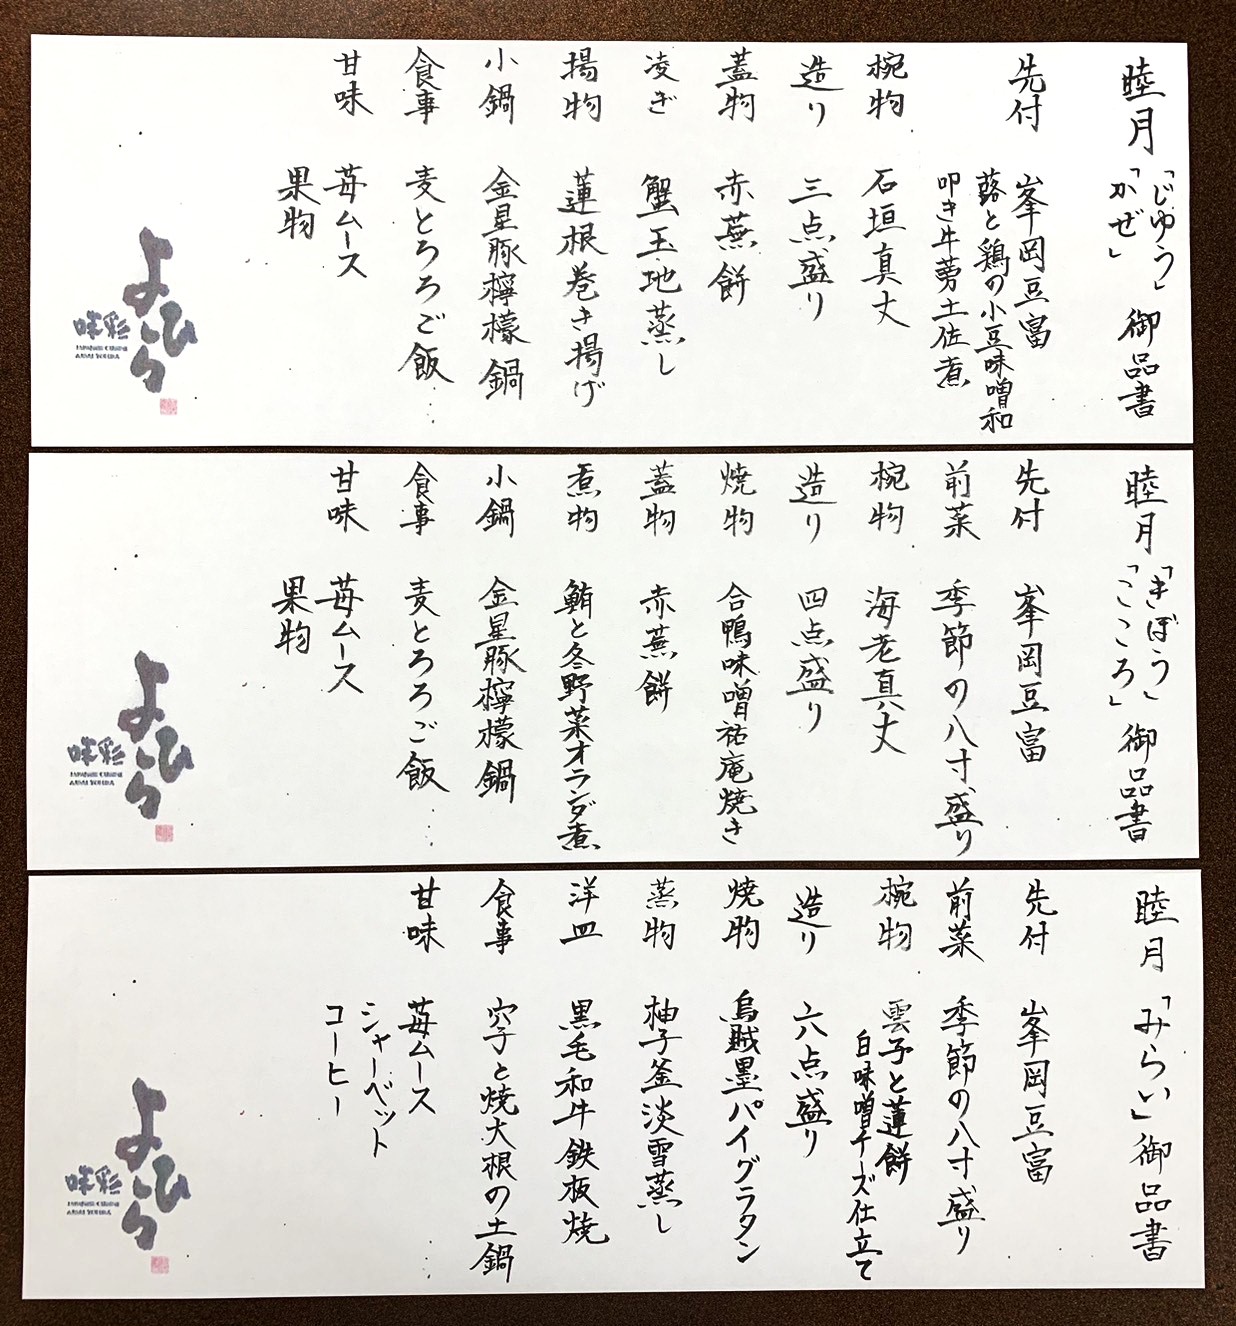 睦月「じゆう」「かぜ」御品書
先付 峯岡豆富
蕗と鶏の小豆味噌和
叩き牛蒡土佐煮
椀物 石垣真丈
造り 三点盛り
蓋物 赤蕪餅
凌ぎ 蟹玉地蒸し
揚物 蓮根巻き揚げ
小鍋 金星豚檸檬鍋
食事 麦とろろご飯
甘味 苺ムース
果物
彩味
よひら
睦月「きぼう」「こころ」御品書
先付 峯岡豆富
前菜 季節の八寸盛り
椀物 海老真丈
造り 四点盛り
焼物 合鴨味噌祐庵焼き
蓋物 赤蕪餅
煮物 鮪と冬野菜オランダ煮
小鍋 金星豚檸檬鍋
食事 麦とろろご飯
甘味 苺ムース
果物
彩味
よひら
睦月「みらい」御品書
先付 峯岡豆富
前菜 季節の八寸盛り
椀物 雲子と蓮餅
白味噌チーズ仕立て
造り 六点盛り
焼物 烏賊墨パイグラタン
蒸物 柚子釜淡雪蒸し
洋皿 黒毛和牛鉄板焼
食事 穴子と焼大根の土鍋
甘味 苺ムース
シャーベット
コーヒー
彩味
よひら